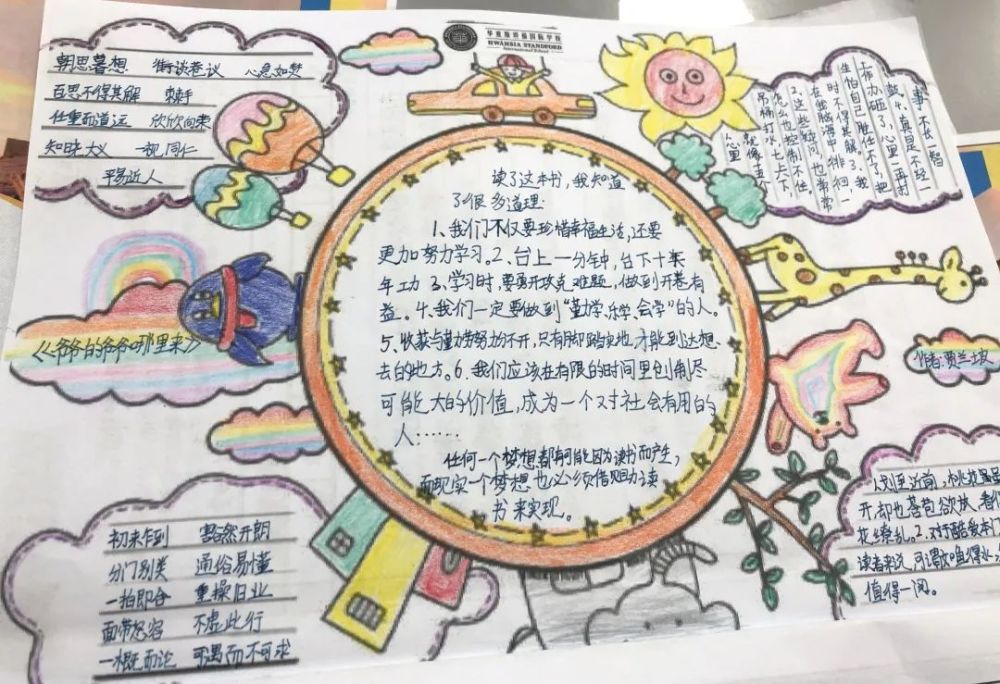 华夏斯坦福国际学校
HWAHSIA STANDFORD
International School
朝思暮想 街谈巷议 心急如焚
百思不得其解 棘手
任重而道远 欣欣向荣
知晓大义 一视同仁
平易近人
事不长一智
上有力碰了,心里一再打
鼓。4、真是不经一
生怕自己胜任不了,把
时不得其解。3、我
在我脑海中徘徊一
2、这些疑问也常常
怎么也控制不住,
吊桶打水,七上八下,
就像十五个
人心里
读了这本书,我知道
了很多道理:
1、我们不仅要珍惜幸福生活,还要
更加努力学习。2、台上一分钟,台下十
年功 3、学习时,要勇于攻克难题,做到开卷有
益。4、我们一定要做到“勤学、乐学、会学”的人。
5、收获与勤劳努力分不开,只有脚踏实地,才能到达想
去的地方。6、我们应该在有限的时间里创制尽
可能大的价值,成为一个对社会有用的
人……
任何一个梦想都有可能因为读书而产生,
而现实一个梦想也必须借助读
书来实现。
《爷爷的爷爷哪里来》
作者:贾兰坡
初来乍到 豁然开朗
分门别类 通俗易懂
一拍即合 重操旧业
面带怒容 不虚此行
一概而论 可遇而不可求
人刚至近前,桃花虽
开,却也含苞欲放,春
花缭乱。2、对于酷爱
读者来说,可谓
值得一阅。